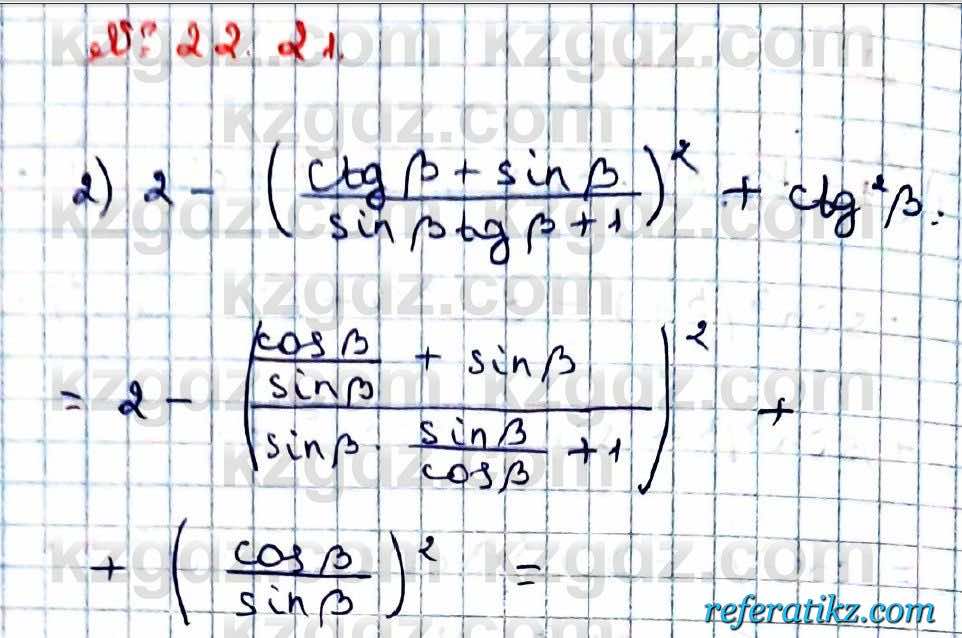 № 22. 21.
kzgdz.com
2) 2 - ( (ctg β + sin β) / (sin β tg β + 1) )² + ctg² β.
= 2 - ( (cos β / sin β + sin β) / (sin β · sin β / cos β + 1) )² +
+ ( cos β / sin β )² =
referatikz.com